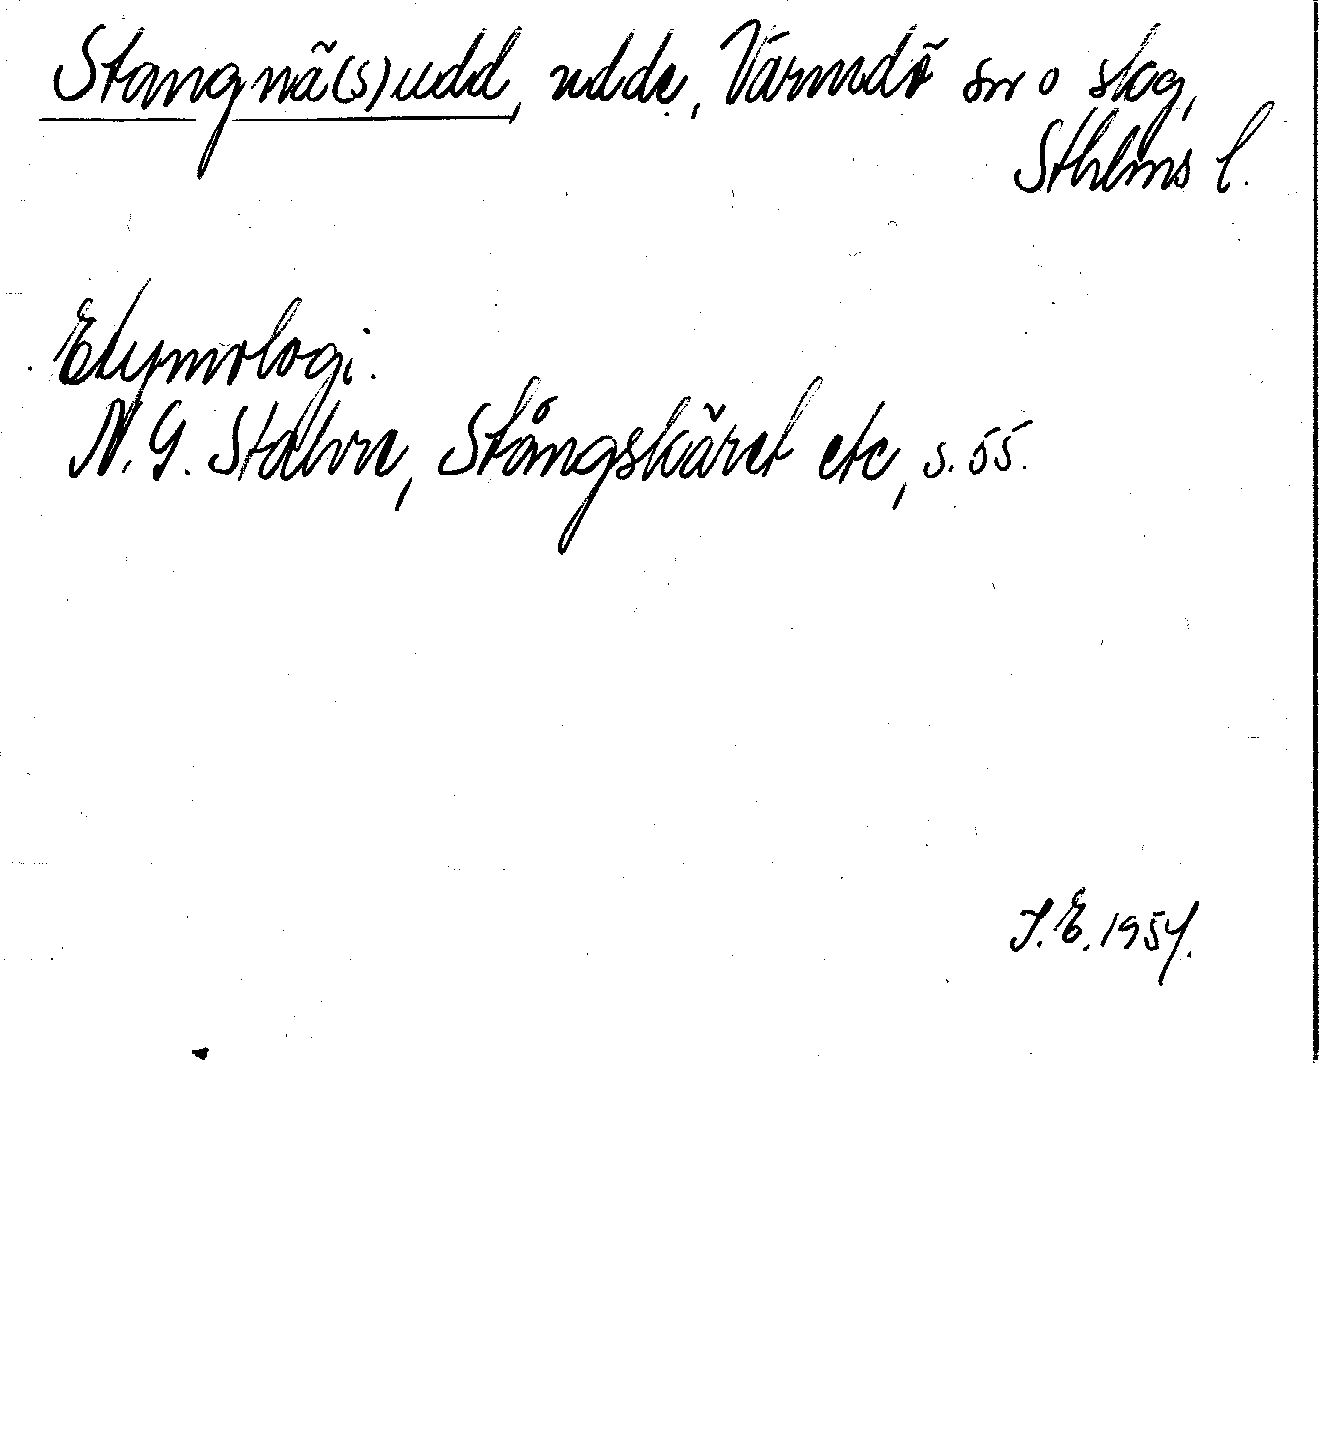 Stangnä(s)udd, udde, Värmdö sn o skg,
Sthlms l.
Etymologi.
N. G. Stahre, Stångskäret etc, s. 55.
I. E. 1957.